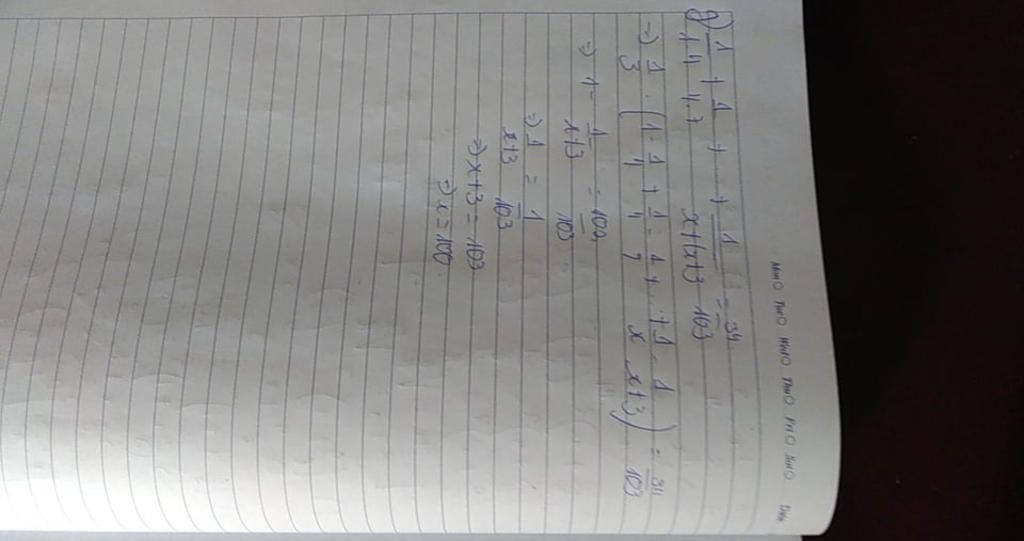 Mon Tue Wed Thu Fri Sat Date
g) 1/1.4 + 1/4.7 + ... + 1/x+(x+3 = 34/103
=> 1/3 . (1 - 1/4 + 1/4 - 1/7 + ... + 1/x - 1/x+3) = 34/103
=> 1 - 1/x+3 = 102/103
=> 1/x+3 = 1/103
=> x+3 = 103
=> x = 100